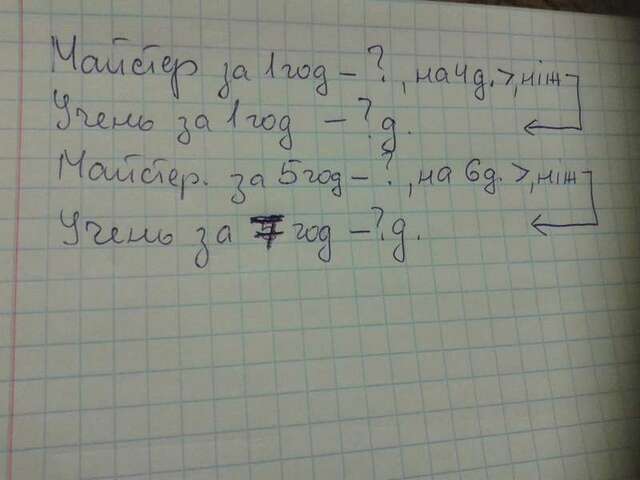 Майстер за 1 год – ?, на 4 д. >, ніж
Учень за 1 год – ? д.
Майстер. за 5 год – ?, на 6 д. >, ніж
Учень за 7 год – ? д.